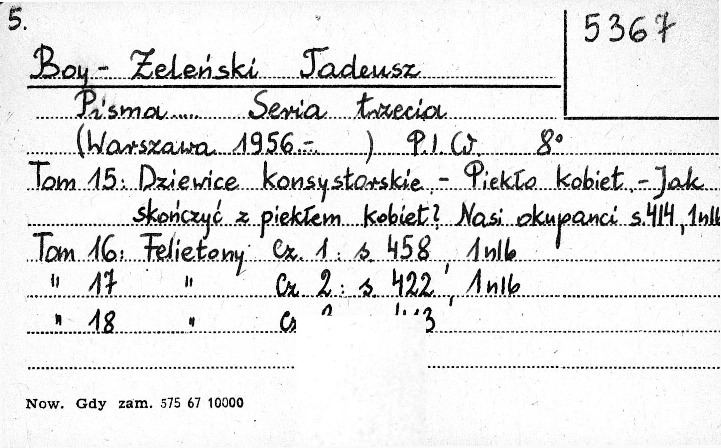 5.
5367
Boy - Żeleński Tadeusz
Pisma..... Seria trzecia
(Warszawa 1956.- ) P.I.W. 8°
Tom 15: Dziewice konsystorskie - Piekło kobiet - Jak
skończyć z piekłem kobiet? Nasi okupanci s. 414, 1nlb
Tom 16: Felietony Cz. 1: s 458, 1nlb
" 17 " Cz. 2: s. 422, 1nlb
" 18 "
Now. Gdy zam. 575 67 10000